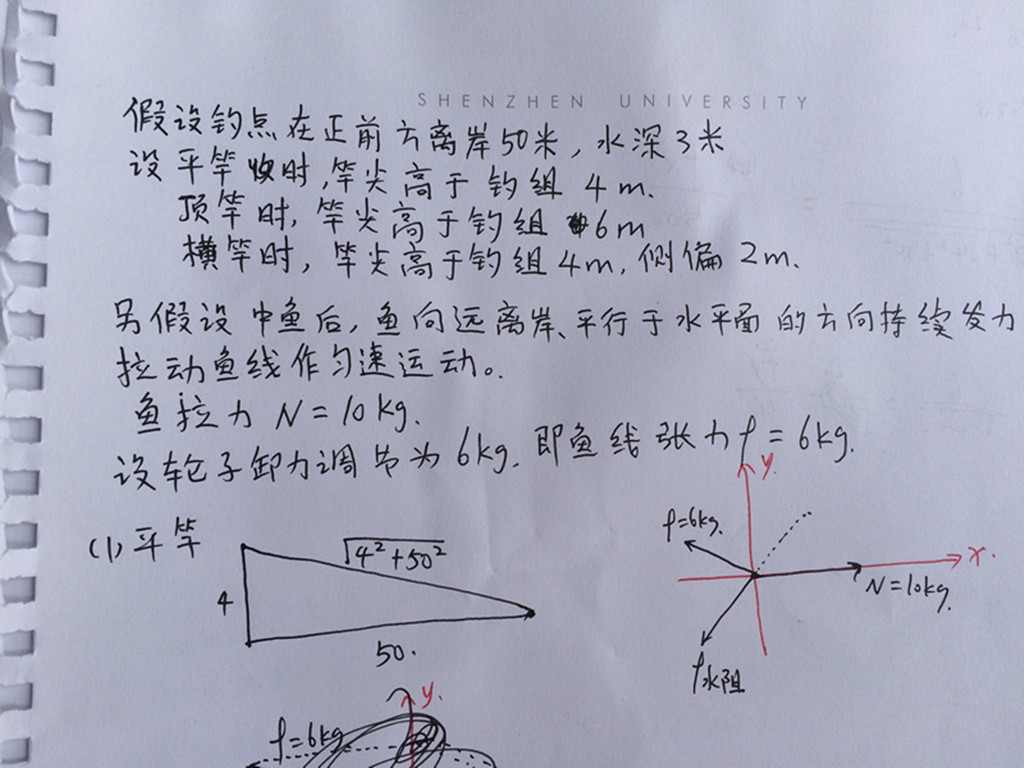 SHENZHEN UNIVERSITY
假设钓点在正前方离岸50米，水深3米
设平竿收时，竿尖高于钓组 4m.
顶竿时，竿尖高于钓组 6m
横竿时，竿尖高于钓组4m，侧偏2m.
另假设中鱼后，鱼向远离岸、平行于水平面的方向持续发力
拉动鱼线作匀速运动。
鱼拉力 N=10kg.
设轮子卸力调节为6kg. 即鱼线张力f=6kg.
(1) 平竿
√4²+50²
4
50.
y.
f=6kg.
x.
N=10kg.
f水阻
y.
f=6kg